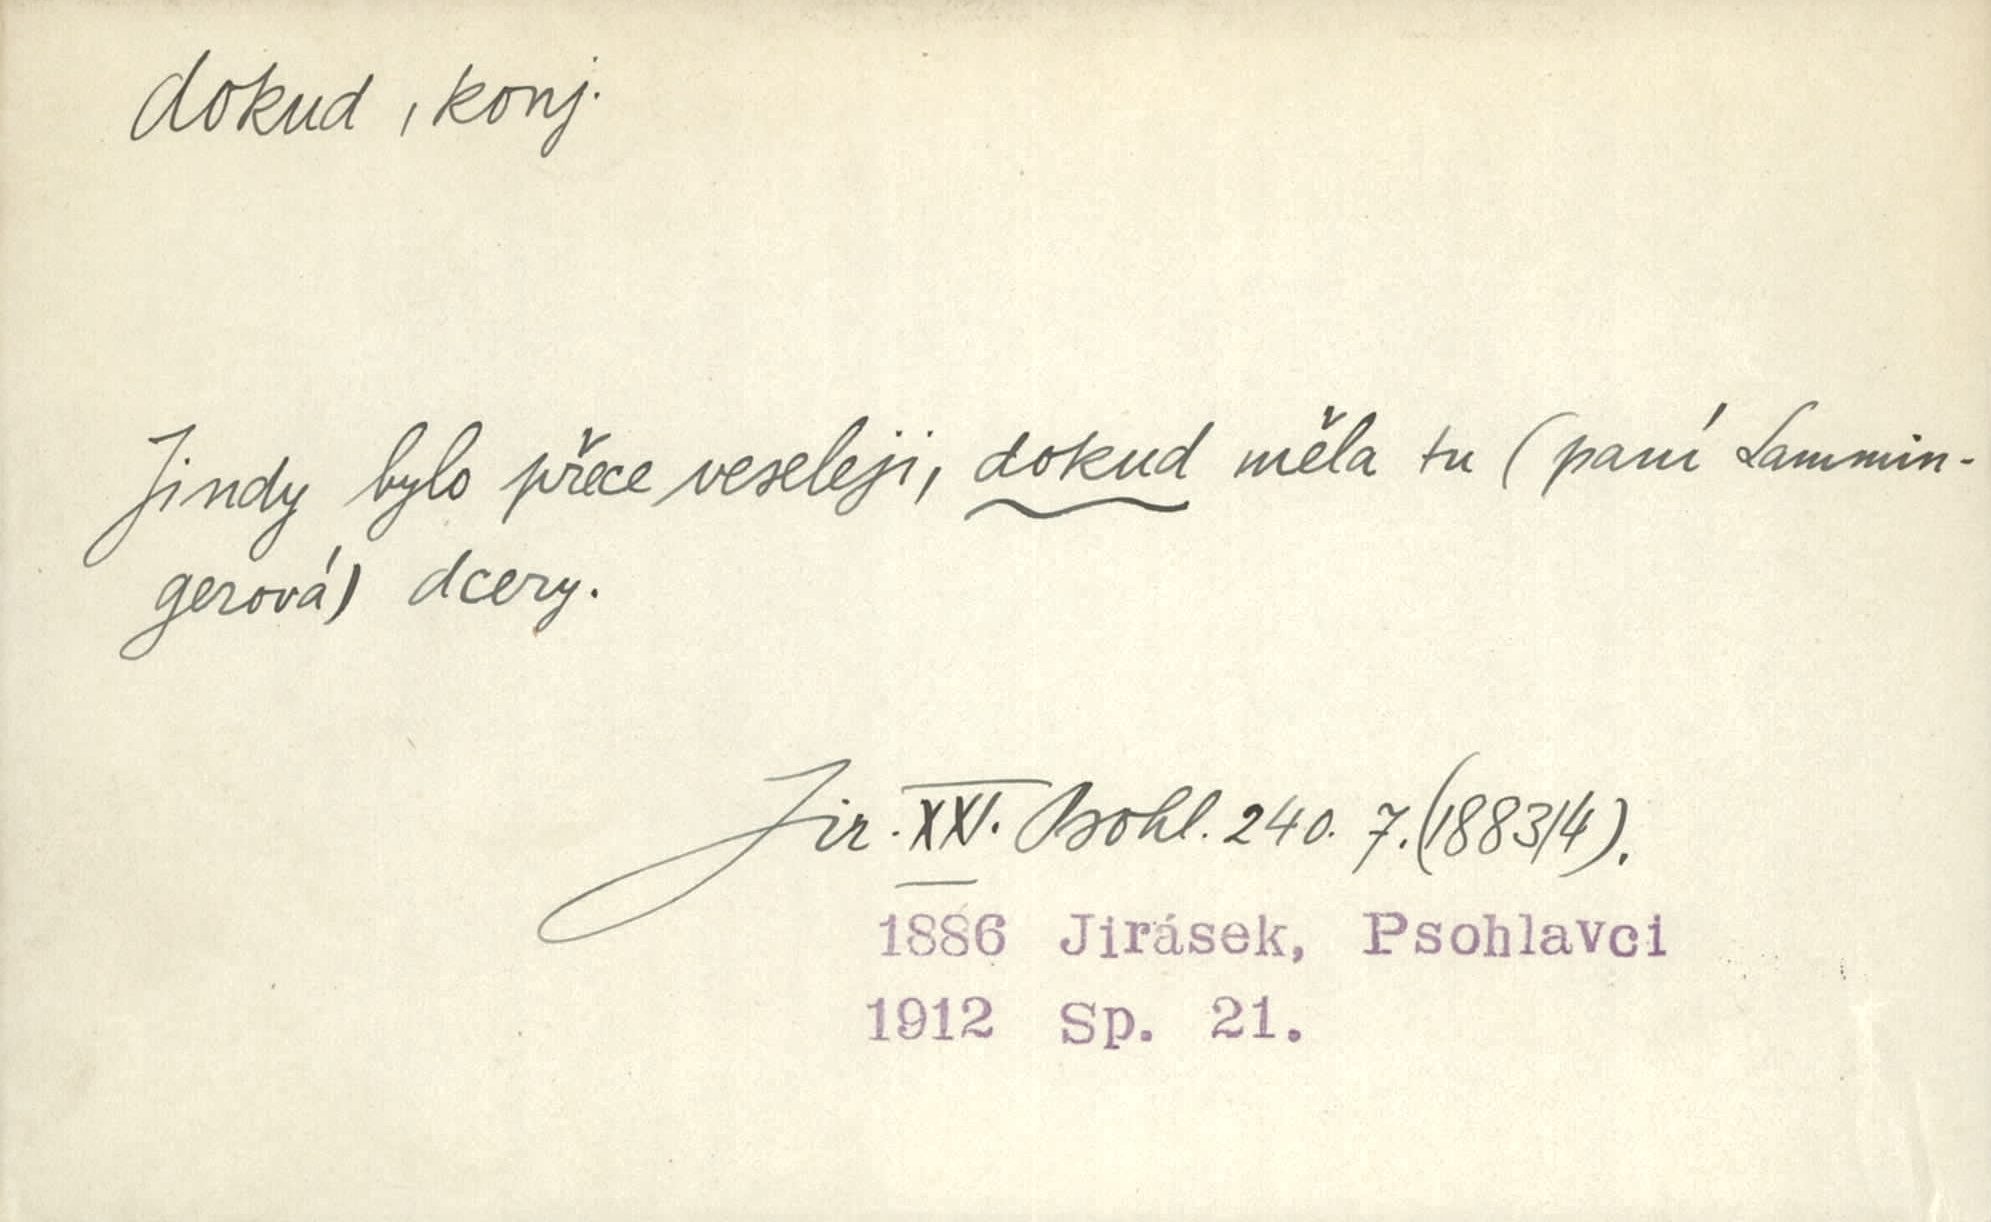 dokud, konj.
Jindy bylo přece veseleji, dokud měla tu (paní Lammin-
gerová) dcery.
Jir. XXI. Psohl. 240. 7. (1883/4).
1886 Jirásek, Psohlavci
1912 Sp. 21.